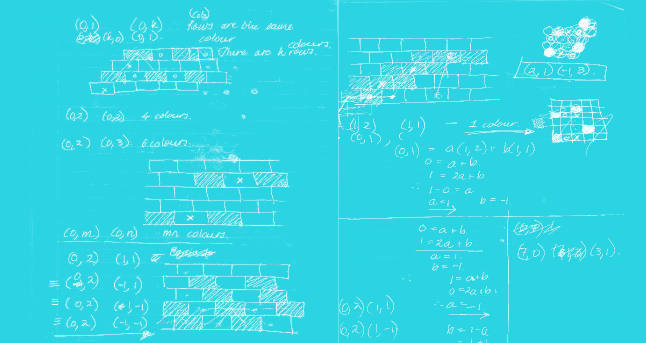 (0,1) (0,k) Rows are the same
colour
(k,0) (0,1)
There are k rows.
colours.
x
(0,2) (0,2) 4 colours.
(0,2) (0,3) 6 colours.
x
x
(0,m) (0,n) mn colours.
(0,2) (1,1)
≡ (0,2) (-1,1)
≡ (0,2) (1,-1)
≡ (0,2) (-1,-1)
(2,1) (-1,3).
(1,2) (1,1) — 1 colour
(0,1), (
(0,1) = a(1,2) + b(1,1)
0 = a+b
1 = 2a+b
∴ 1-0 = a
a=1 b=-1
0 = a+b
1 = 2a+b
a=1
b=-1
∴ 1=a+b
0=2a+b
∴ a=-1
(0,2) (1,1)
(0,2) (1,-1)
b=1-a
(7,0) (3,1).